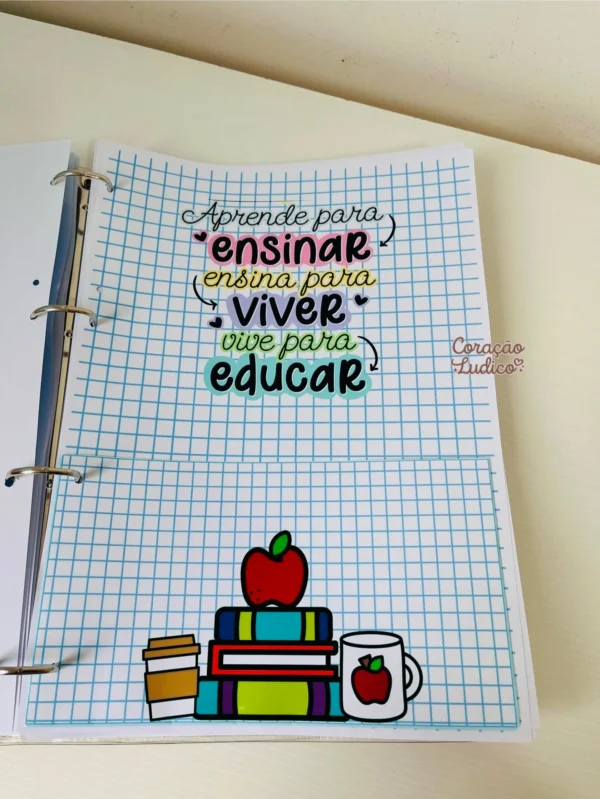 Aprende para
ensinar
ensina para
viver
vive para
educar
Coração
Ludico